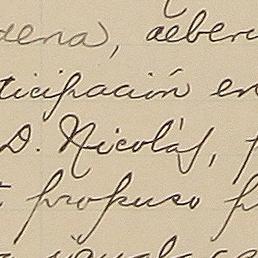 dena, deber
ticipación en
D. Nicolás,
propuso